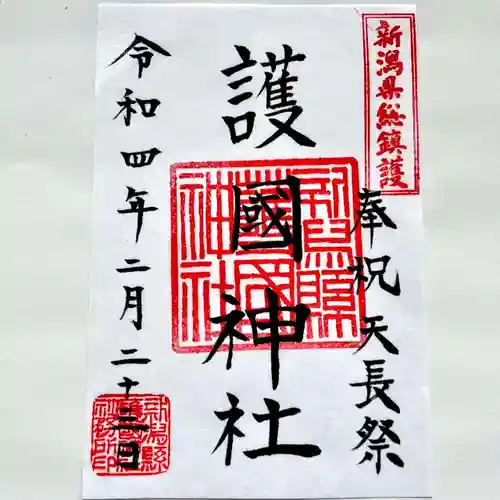 新潟県総鎮護
奉祝 天長祭
護國神社
新潟縣護國神社
令和四年二月二十三日